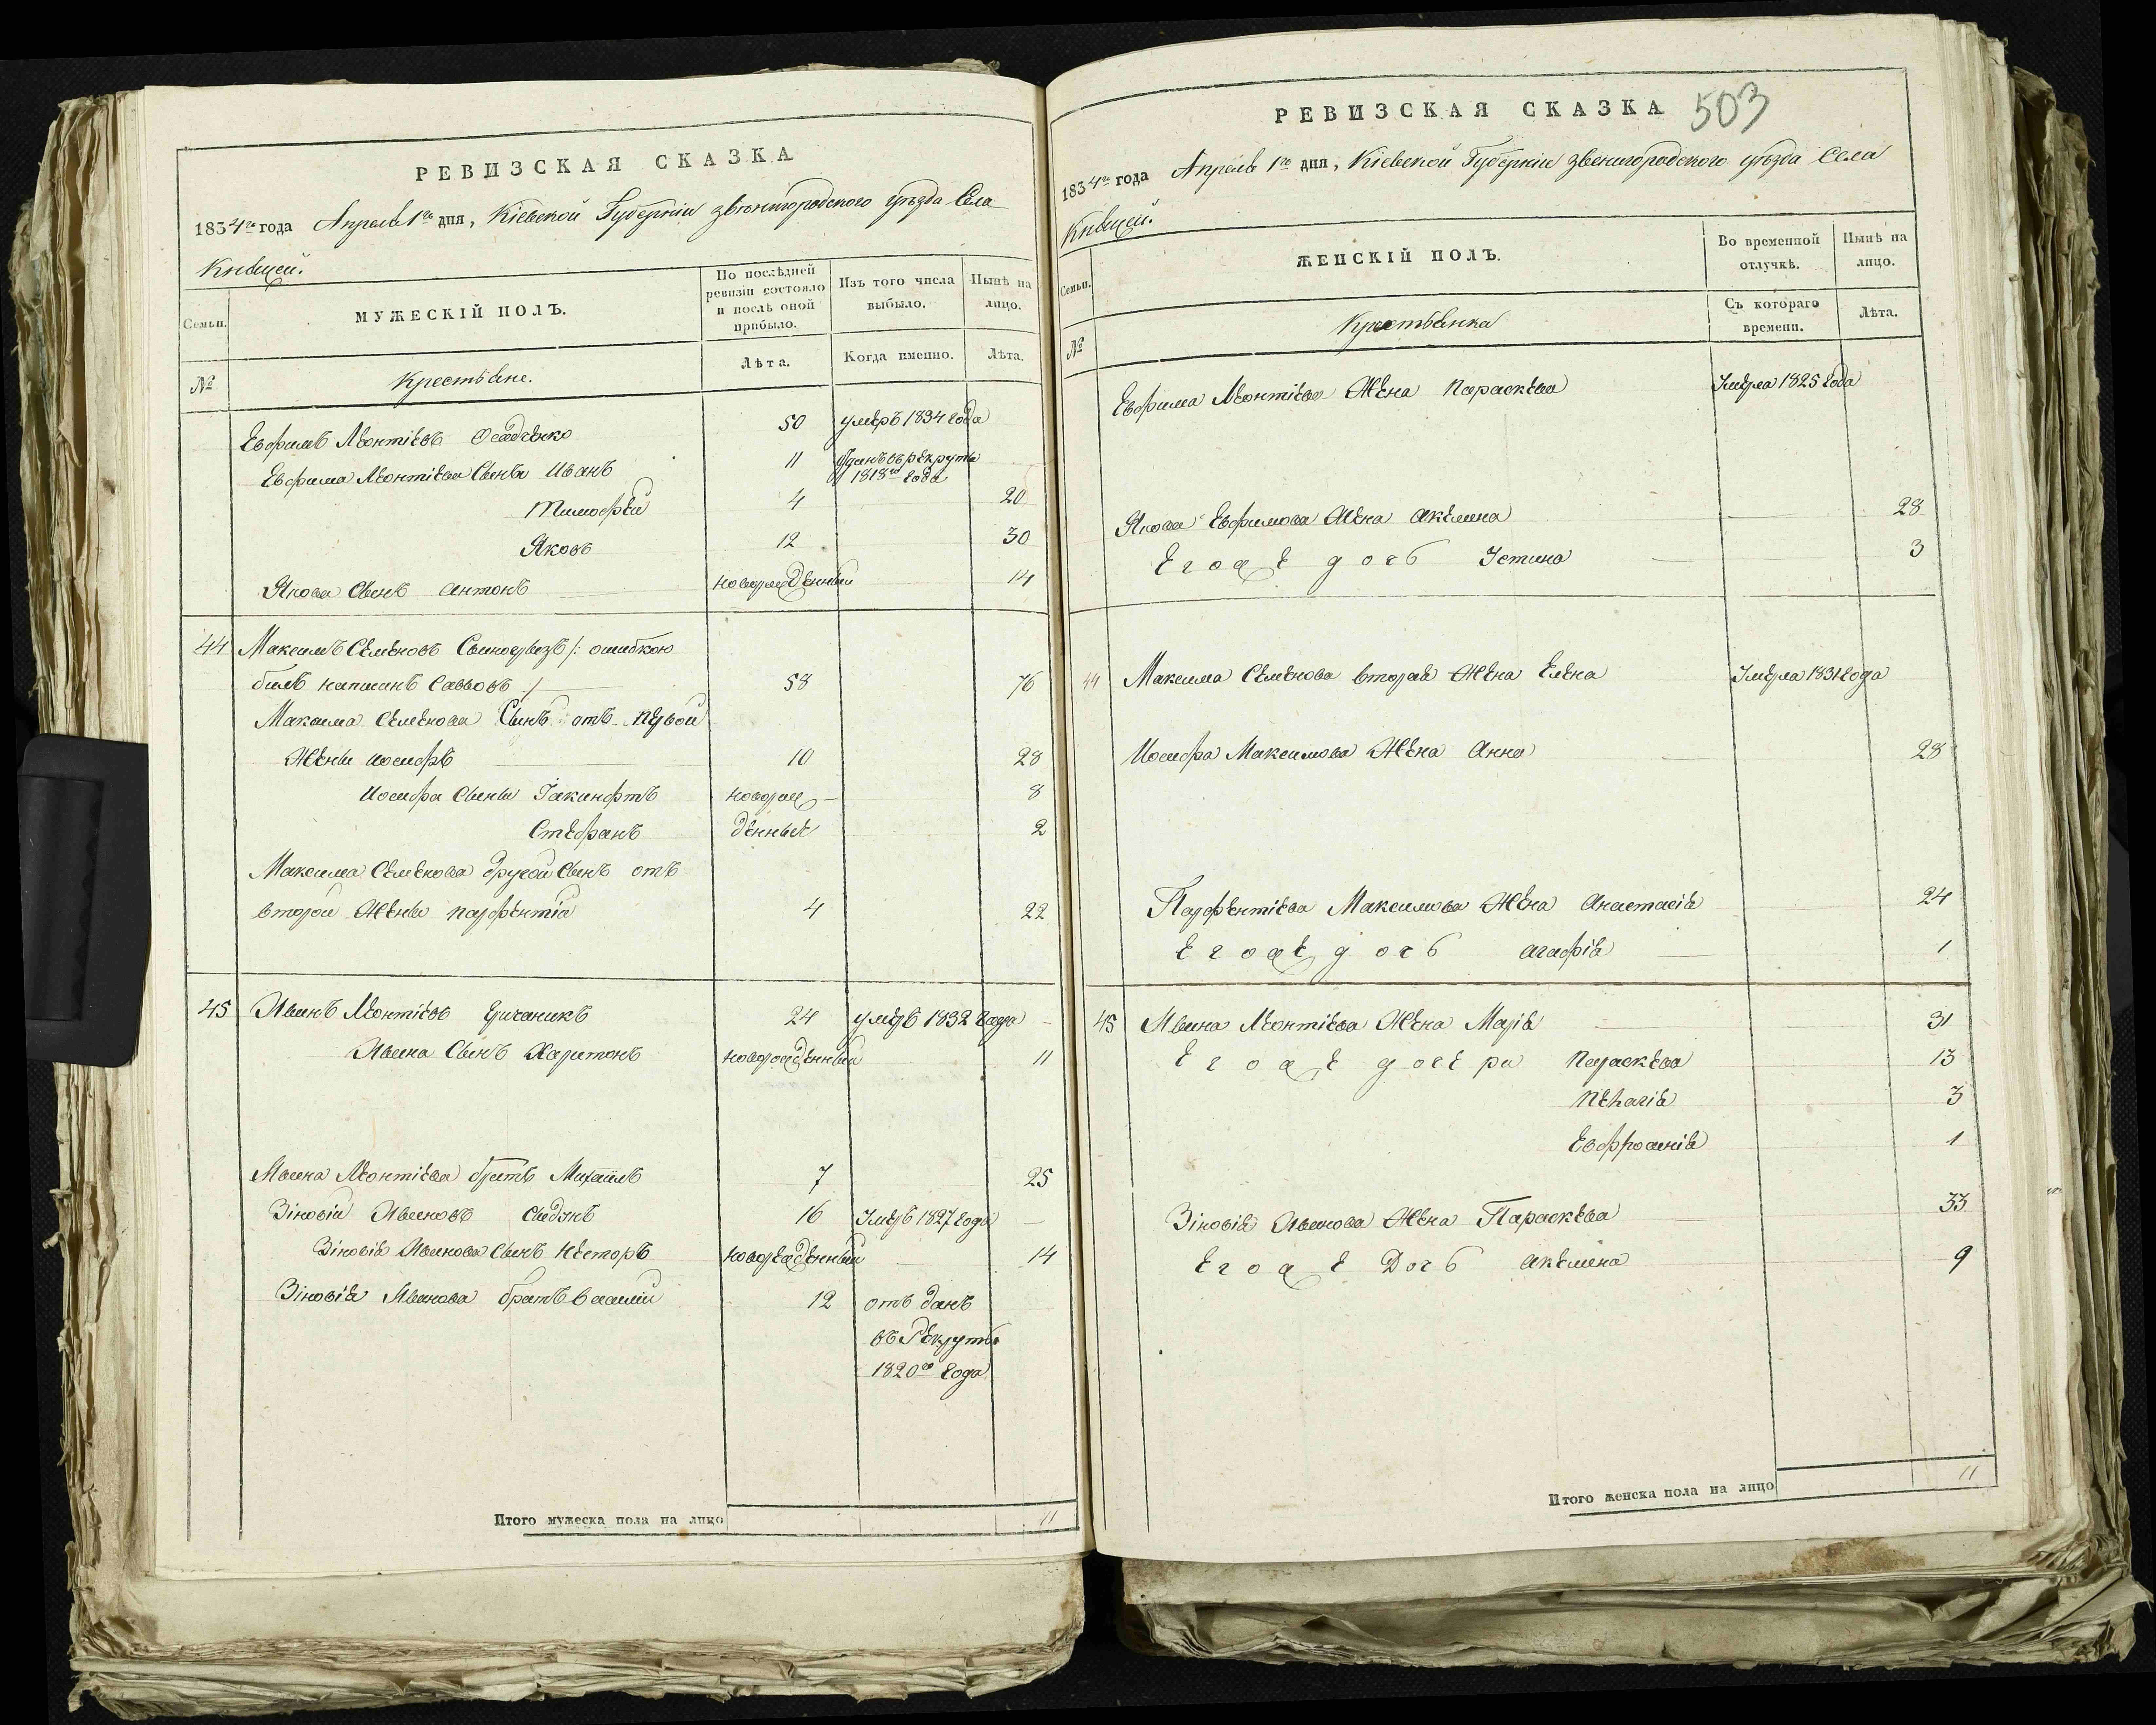 РЕВИЗСКАЯ СКАЗКА
1834го года Апреля 1го дня, Кіевской Губерніи звенигородского уезда Села
Княжей.
Семьи.
МУЖЕСКІЙ ПОЛЪ.
По послѣдней ревизіи состояло и послѣ оной прибыло.
Изъ того числа выбыло.
Нынѣ на лицо.
№
Крестьяне.
Лѣта.
Когда именно.
Лѣта.
Евфимъ Леонтіевъ Осадченко 50 умеръ 1834 года
Евфима Леонтіева Сыны Иванъ 11 Отданъ въ рекруты 1818го года
Тимофей 4 20
Яковъ 12 30
Якова Сынъ Антонъ новорожденный 14
44 Максимъ Семеновъ /: ошибкою
былъ написанъ Саввовъ :/ 58 76
Максима Семенова Сынъ отъ первой
Жены Иосифъ 10 28
Иосифа Сыны Гакинфтъ новорож- 8
Стефанъ денные 2
Максима Семенова другой Сынъ отъ
второй Жены Парфентій 4 22
45 Леонтіевъ 24 умеръ 1832 года
Сынъ Харитонъ новорожденный 11
Леонтіева братъ Михаилъ 7 25
Зіновій 16 Умеръ 1827 года
Зіновія Сынъ Несторъ новорожденный 14
Зіновія братъ Василий 12 отъ данъ
въ Рекруты
1820го года
Итого мужеска пола на лицо 11
503
РЕВИЗСКАЯ СКАЗКА
1834го года Апреля 1го дня, Кіевской Губерніи звенигородского уезда Села
Княжей.
Семьи.
ЖЕНСКІЙ ПОЛЪ.
Во временной отлучкѣ.
Нынѣ на лицо.
№
Крестьянка
Съ котораго времени.
Лѣта.
Евфима Леонтіева Жена Параскева Умерла 1825 года
Якова Евфимова Жена Акелина 28
Егоже дочь Устина 3
44 Максима Семенова вторая Жена Елена Умерла 1831 года
Иосифа Максимова Жена Анна 28
Парфентіева Максимова Жена Анастасія 24
Егоже дочь Агафія 1
45 Леонтіева Жена Марія 31
Егоже дочери Параскева 13
Пелагія 3
Евфросинія 1
Зіновія Жена Параскева 33
Егоже Дочь Акелина 9
Итого женска пола на лицо 11